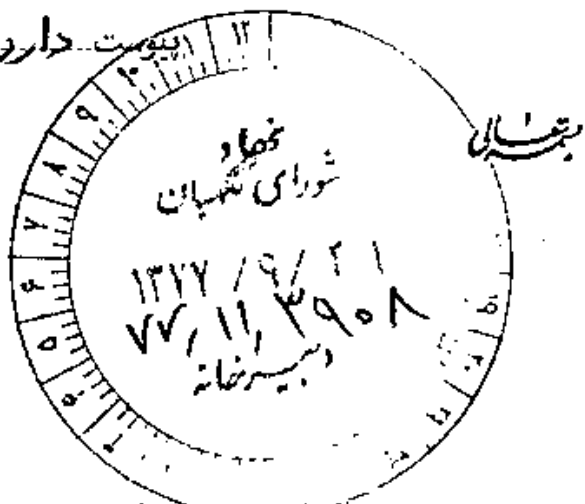 پیوست دارد
بسمه تعالی
نهاد
شورای نگهبان
۱۳۷۷/۹/۲۱
۷۷,۱۱,۳۹۰۸
دبیرخانه
۱۲
۱۱
۱۰
۹
۸
۷
۶
۵